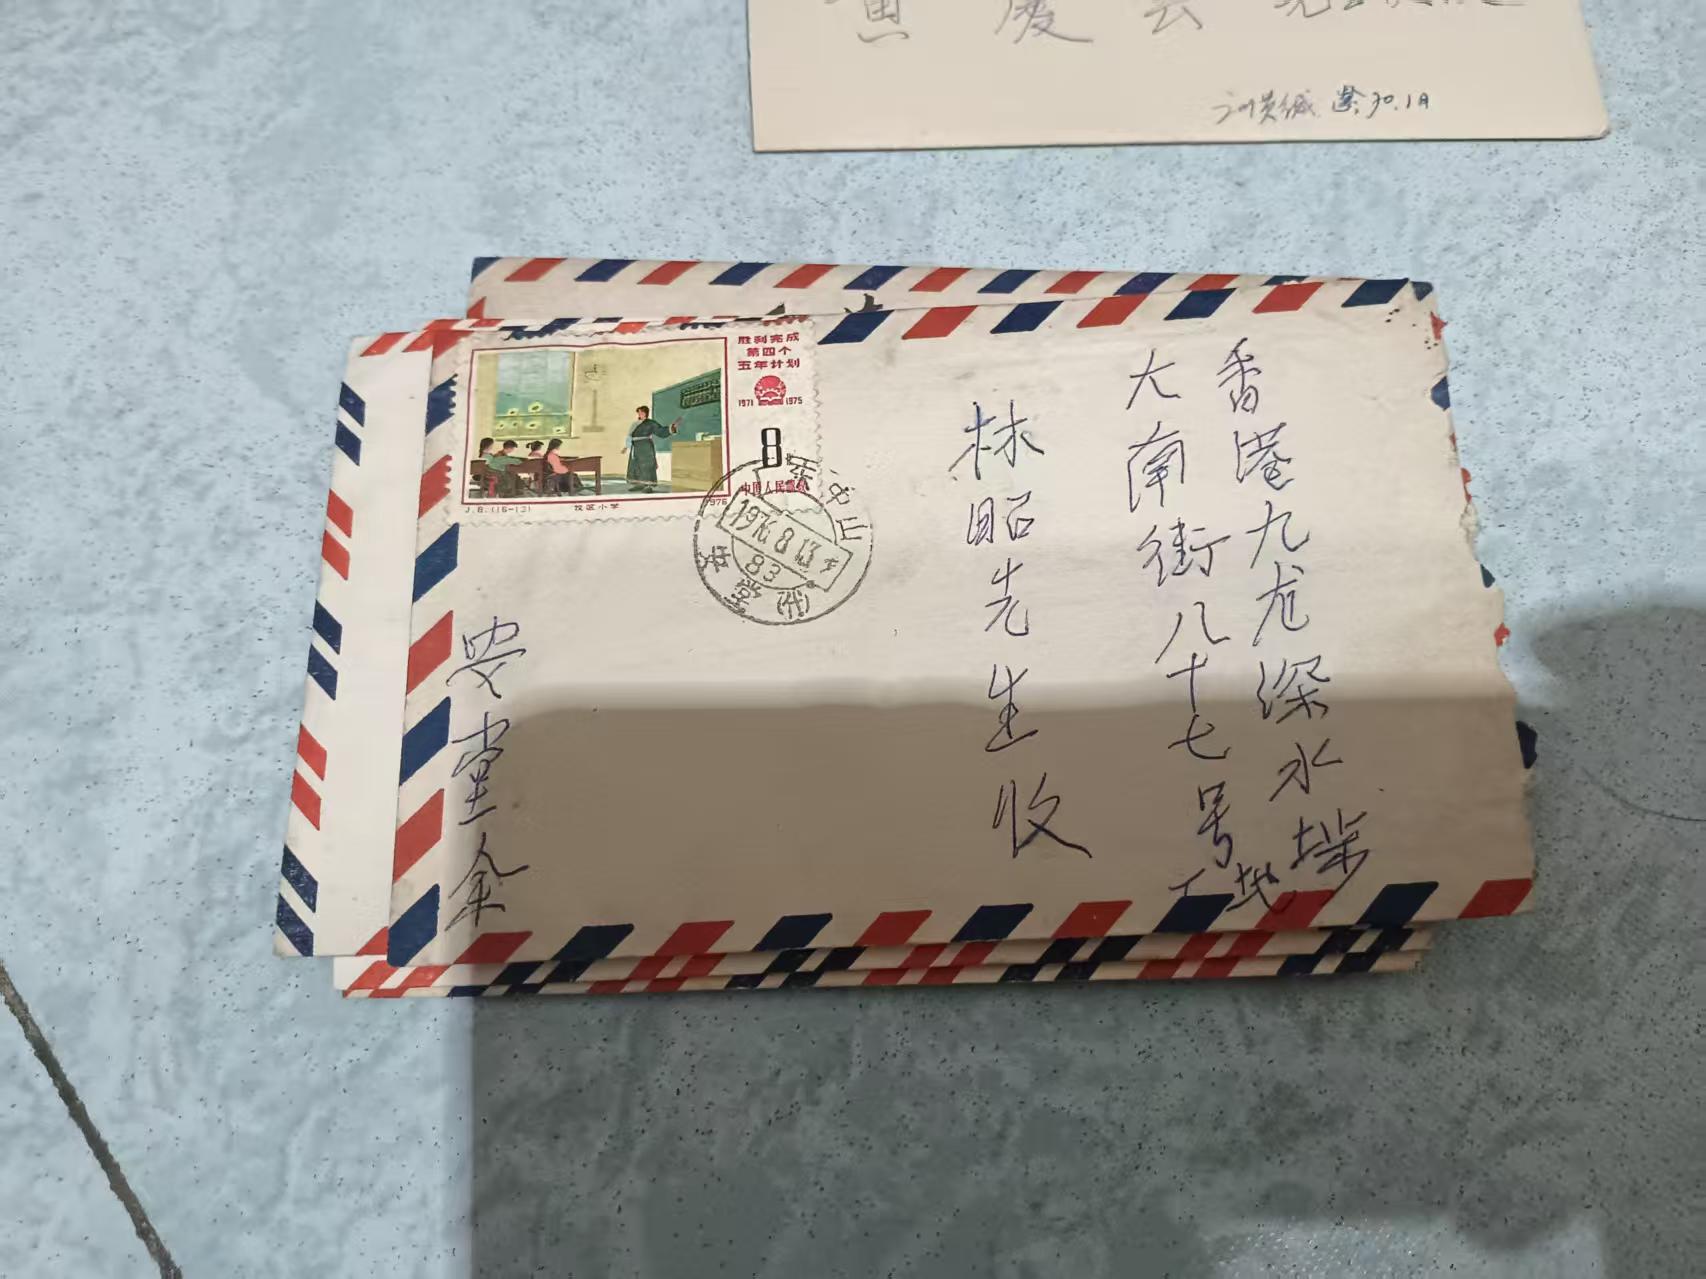 慶雲
30.1月
胜利完成
第四个
五年计划
1971 1975
8
中国人民邮政
J.8.(16-13) 牧区小学 1976
广东中山
1976.8.13
83
安堂(代)
香港九龙深水埗
大南街八十七号
地下
林昭先生收
安堂余